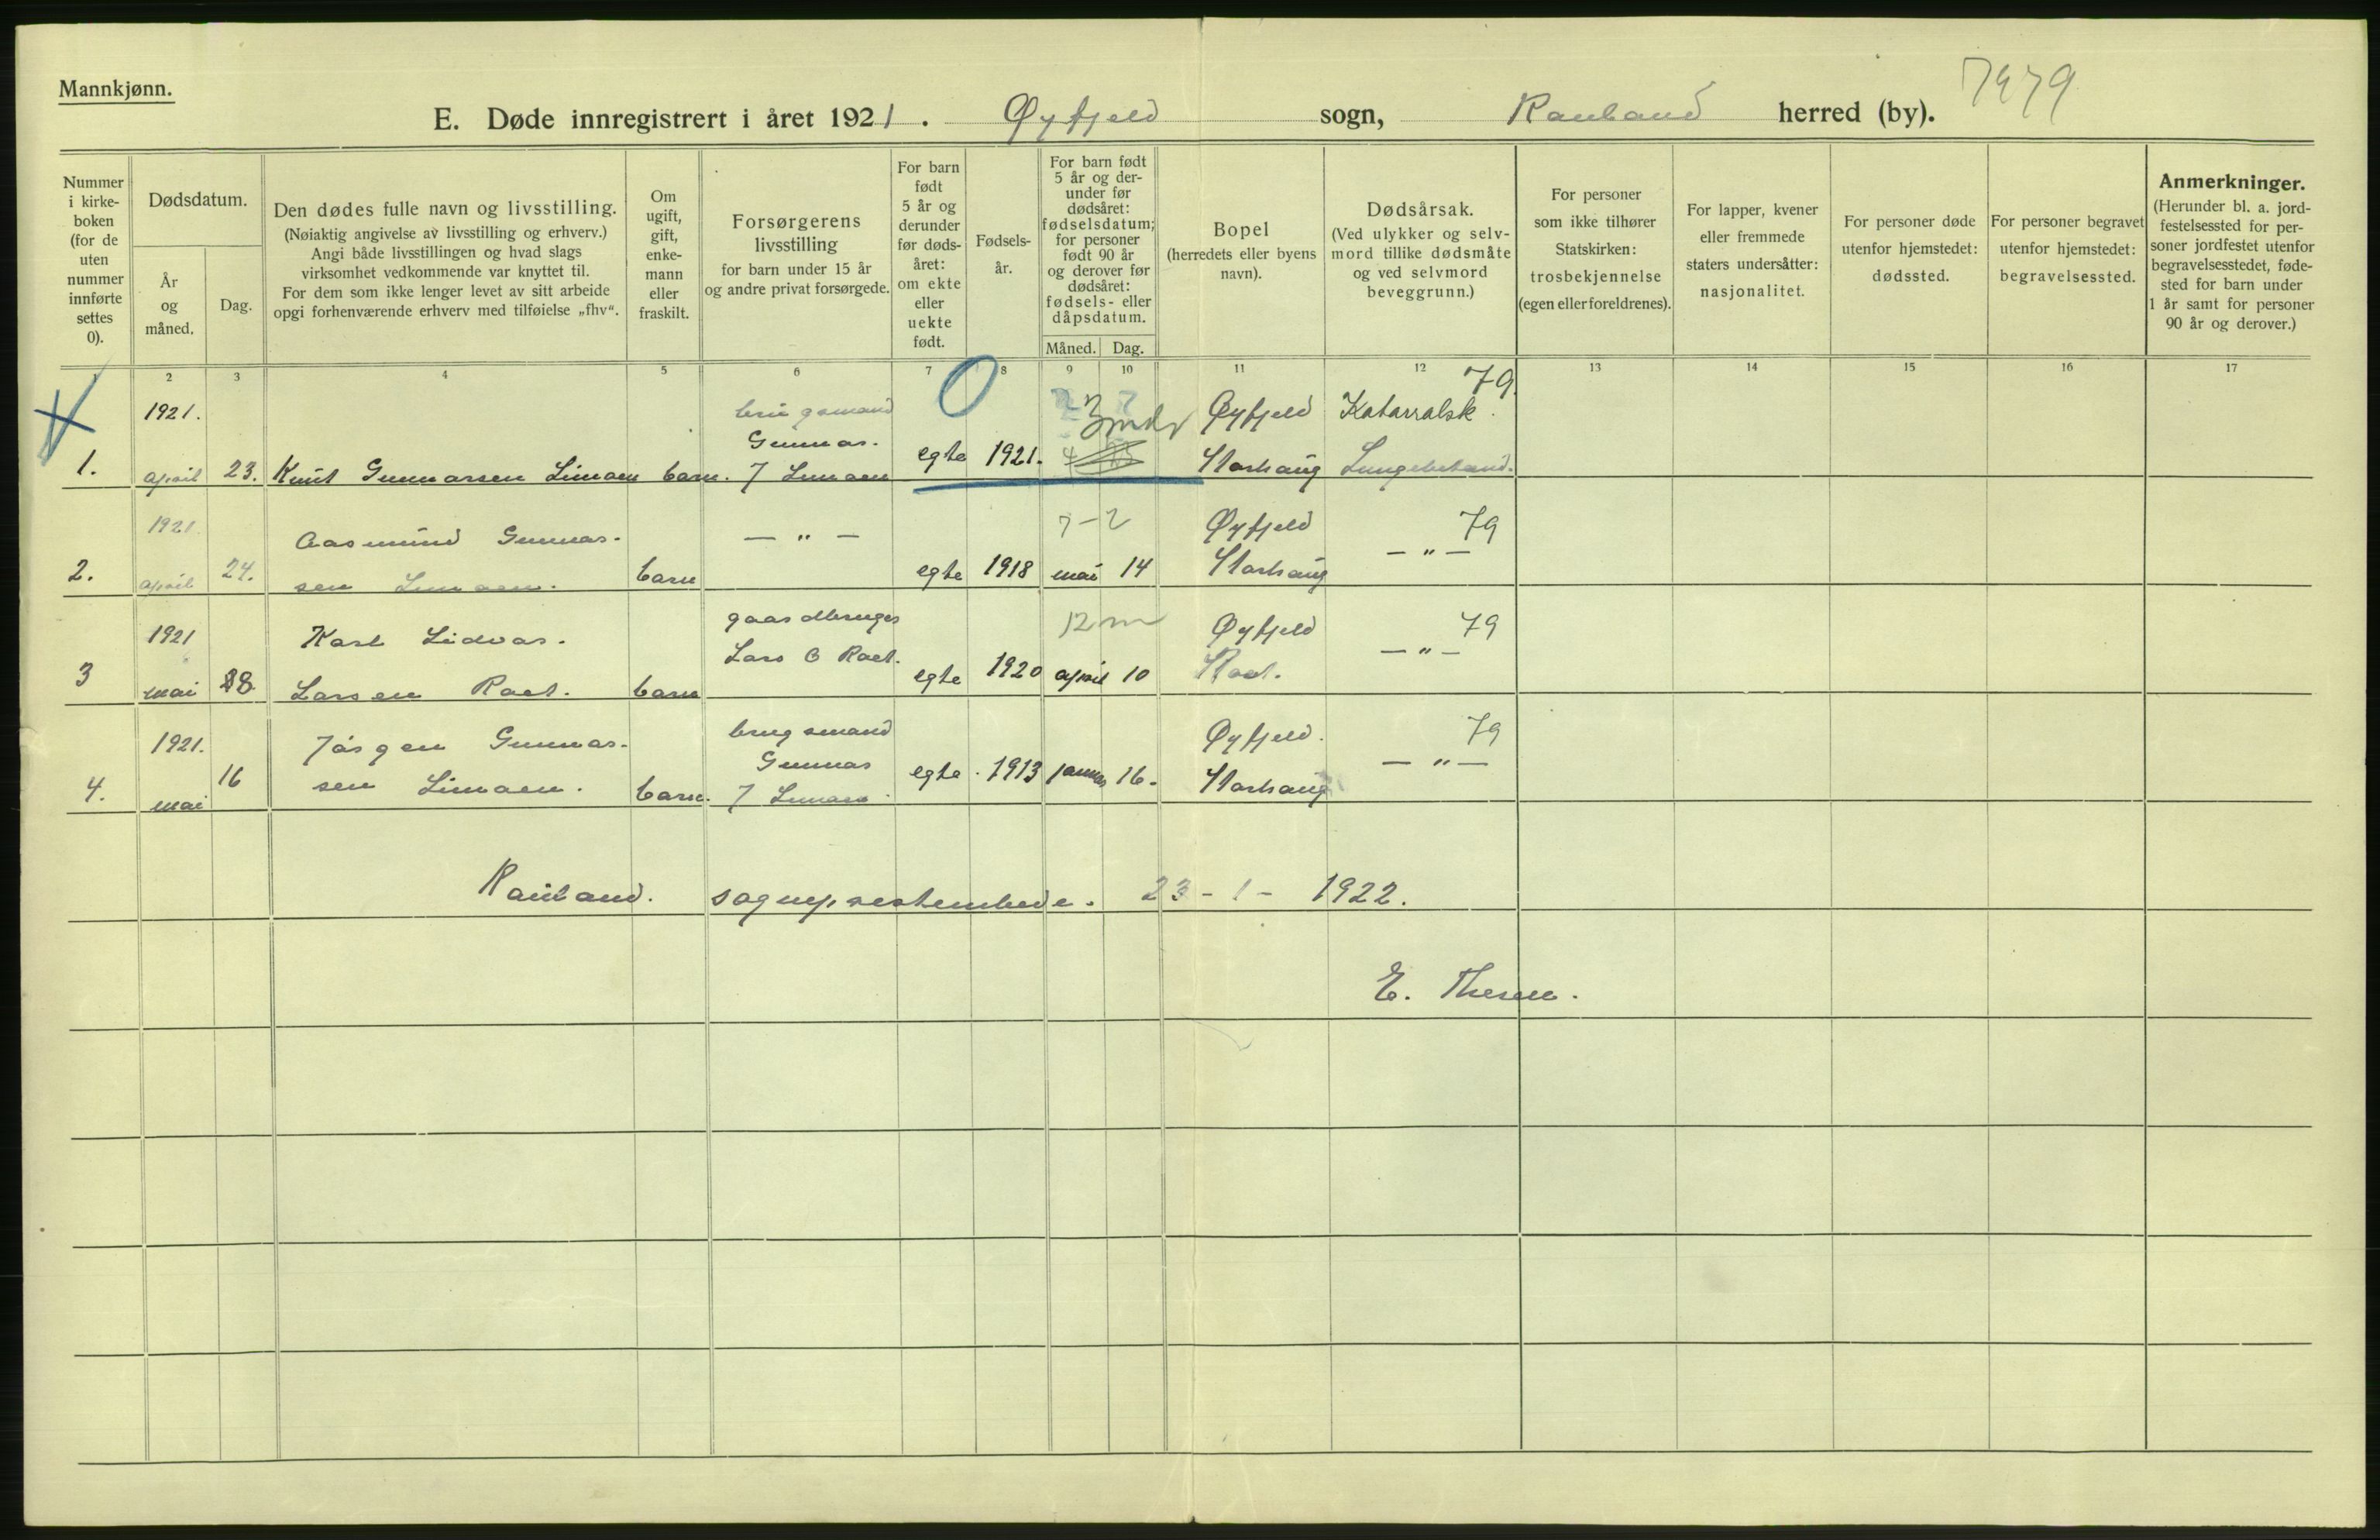 Mannkjønn.
7979
E. Døde innregistrert i året 1921. Øyfjeld sogn, Rauland herred (by).
Nummer i kirke-boken (for de uten nummer innførte settes 0).
Dødsdatum.
År og måned.
Dag.
Den dødes fulle navn og livsstilling.
(Nøiaktig angivelse av livsstilling og erhverv.)
Angi både livsstillingen og hvad slags
virksomhet vedkommende var knyttet til.
For dem som ikke lenger levet av sitt arbeide
opgi forhenværende erhverv med tilføielse „fhv“.
Om ugift, gift, enke-mann eller fraskilt.
Forsørgerens livsstilling
for barn under 15 år
og andre privat forsørgede.
For barn født 5 år og derunder før døds-året: om ekte eller uekte født.
Fødsels-år.
For barn født 5 år og der-under før dødsåret: fødselsdatum; for personer født 90 år og derover før dødsåret: fødsels- eller dåpsdatum.
Måned. Dag.
Bopel
(herredets eller byens navn).
Dødsårsak.
(Ved ulykker og selv-mord tillike dødsmåte og ved selvmord beveggrunn.)
For personer som ikke tilhører Statskirken: trosbekjennelse (egen eller foreldrenes).
For lapper, kvener eller fremmede staters undersåtter: nasjonalitet.
For personer døde utenfor hjemstedet: dødssted.
For personer begravet utenfor hjemstedet: begravelsessted.
Anmerkninger.
(Herunder bl. a. jord-festelsessted for per-soner jordfestet utenfor begravelsesstedet, føde-sted for barn under 1 år samt for personer 90 år og derover.)
1 2 3 4 5 6 7 8 9 10 11 12 13 14 15 16 17
1921. brugsmand 0 3 mdr Øyfjeld Katarralsk 79.
Gunnar
1. april 23. Knut Gunnarsen barn. egte 1921. Lungebetænd.
1921 Aasmund Gunnar- — " — 7-2 Øyfjeld 79
2. april 24. sen barn egte 1918 mai 14 — " —
1921 Karl gaardbruger 12 m Øyfjeld 79
Lars — " —
3 mai Larsen barn egte 1920 april 10
1921. Jørgen Gunnar- brugsmand Øyfjeld. 79
16 Gunnar egte 1913 januar 16. — " —
4. mai sen barn.
Rauland. sogneprestembede. 23-1-1922.
E.